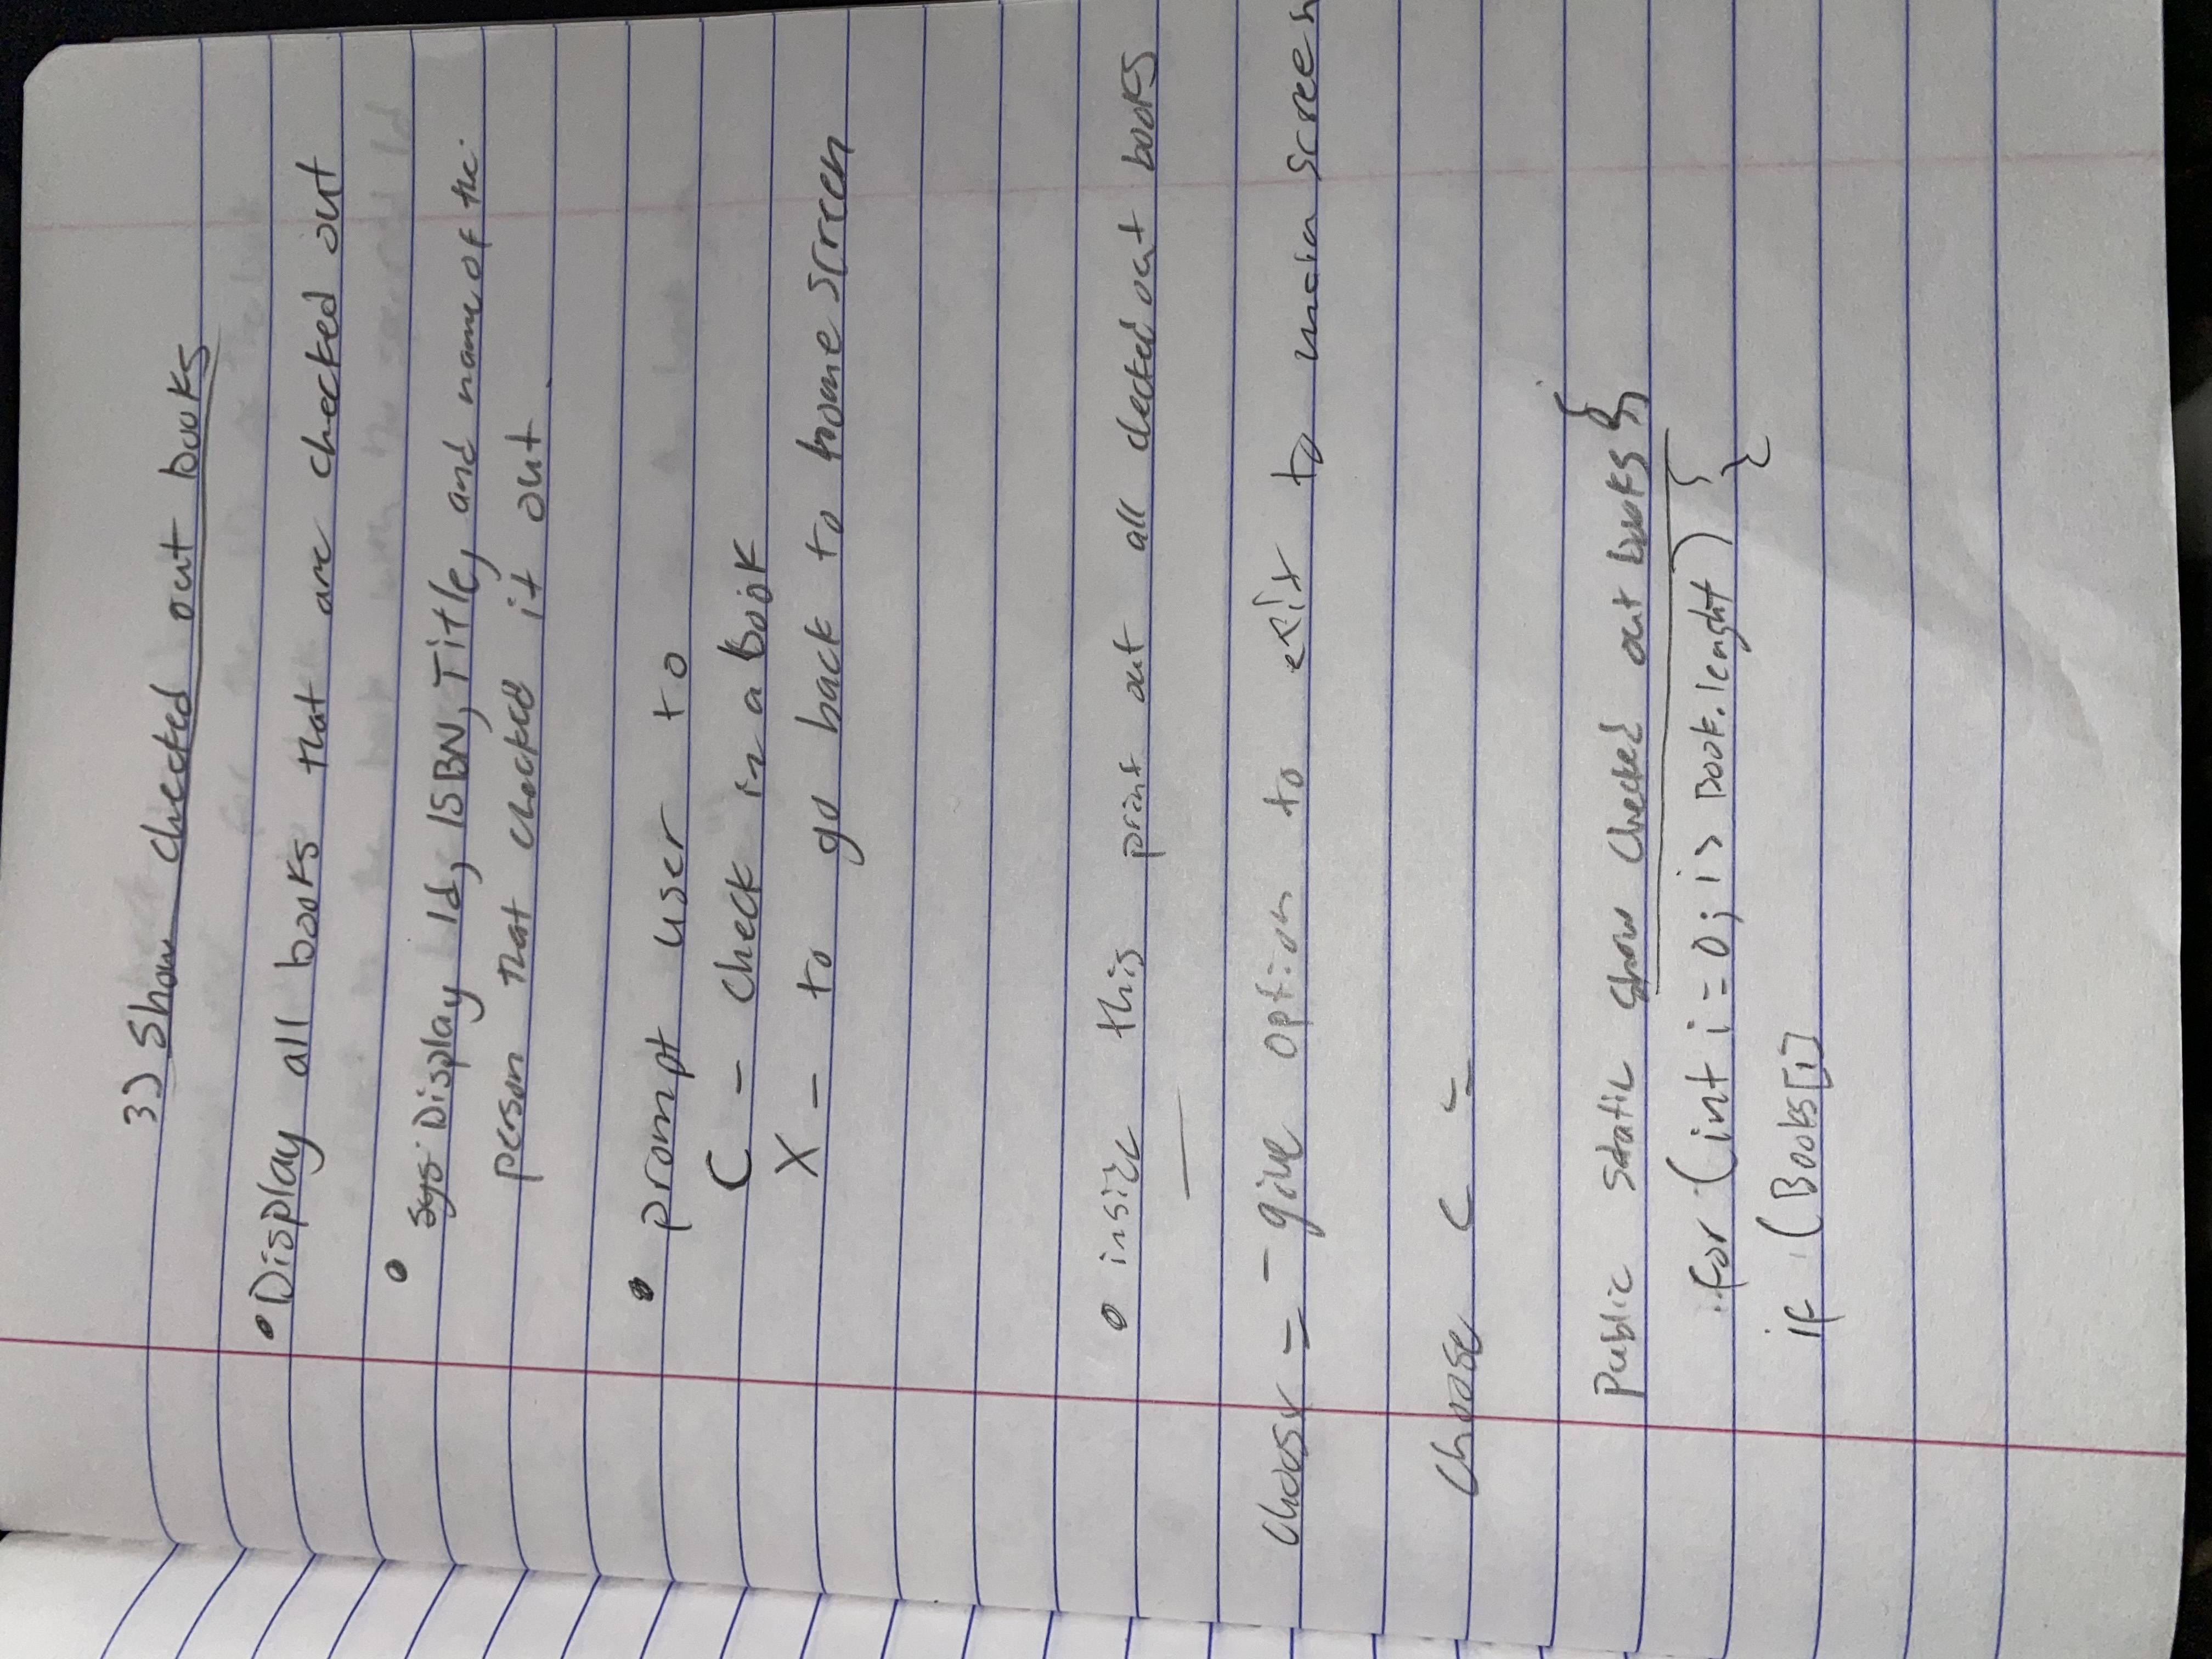 3) Show checked out books
• Display all books that are checked out
• sys Display Id, ISBN, Title, and name of the
person that checked it out.
• prompt user to
C - check in a book
X - to go back to home screen
• inside this print out all checked out books
choose x = - give option to exit to main screen
choose c =
public static show checked out books {
for (int i = 0; i > Book.lenght) {
if (Books[i]